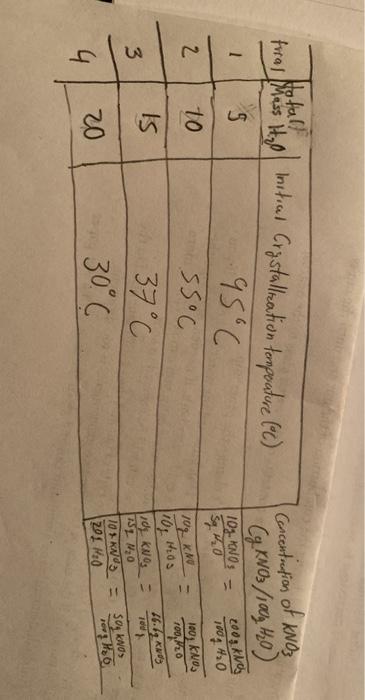 trial | total Mass H₂O | Initial Crystallization temperature (°C) | Concentration of KNO3 (g KNO3/100g H2O)
1 | 5 | 95°C | 10g KNO3 / 5g H2O = 200g KNO3 / 100g H2O
2 | 10 | 55°C | 10g KNO / 10g H2O = 100g KNO3 / 100g H2O
3 | 15 | 37°C | 10g KNO3 / 15g H2O = 66.6g KNO3 / 100g
4 | 20 | 30°C | 10g KNO3 / 20g H2O = 50g KNO3 / 100g H2O